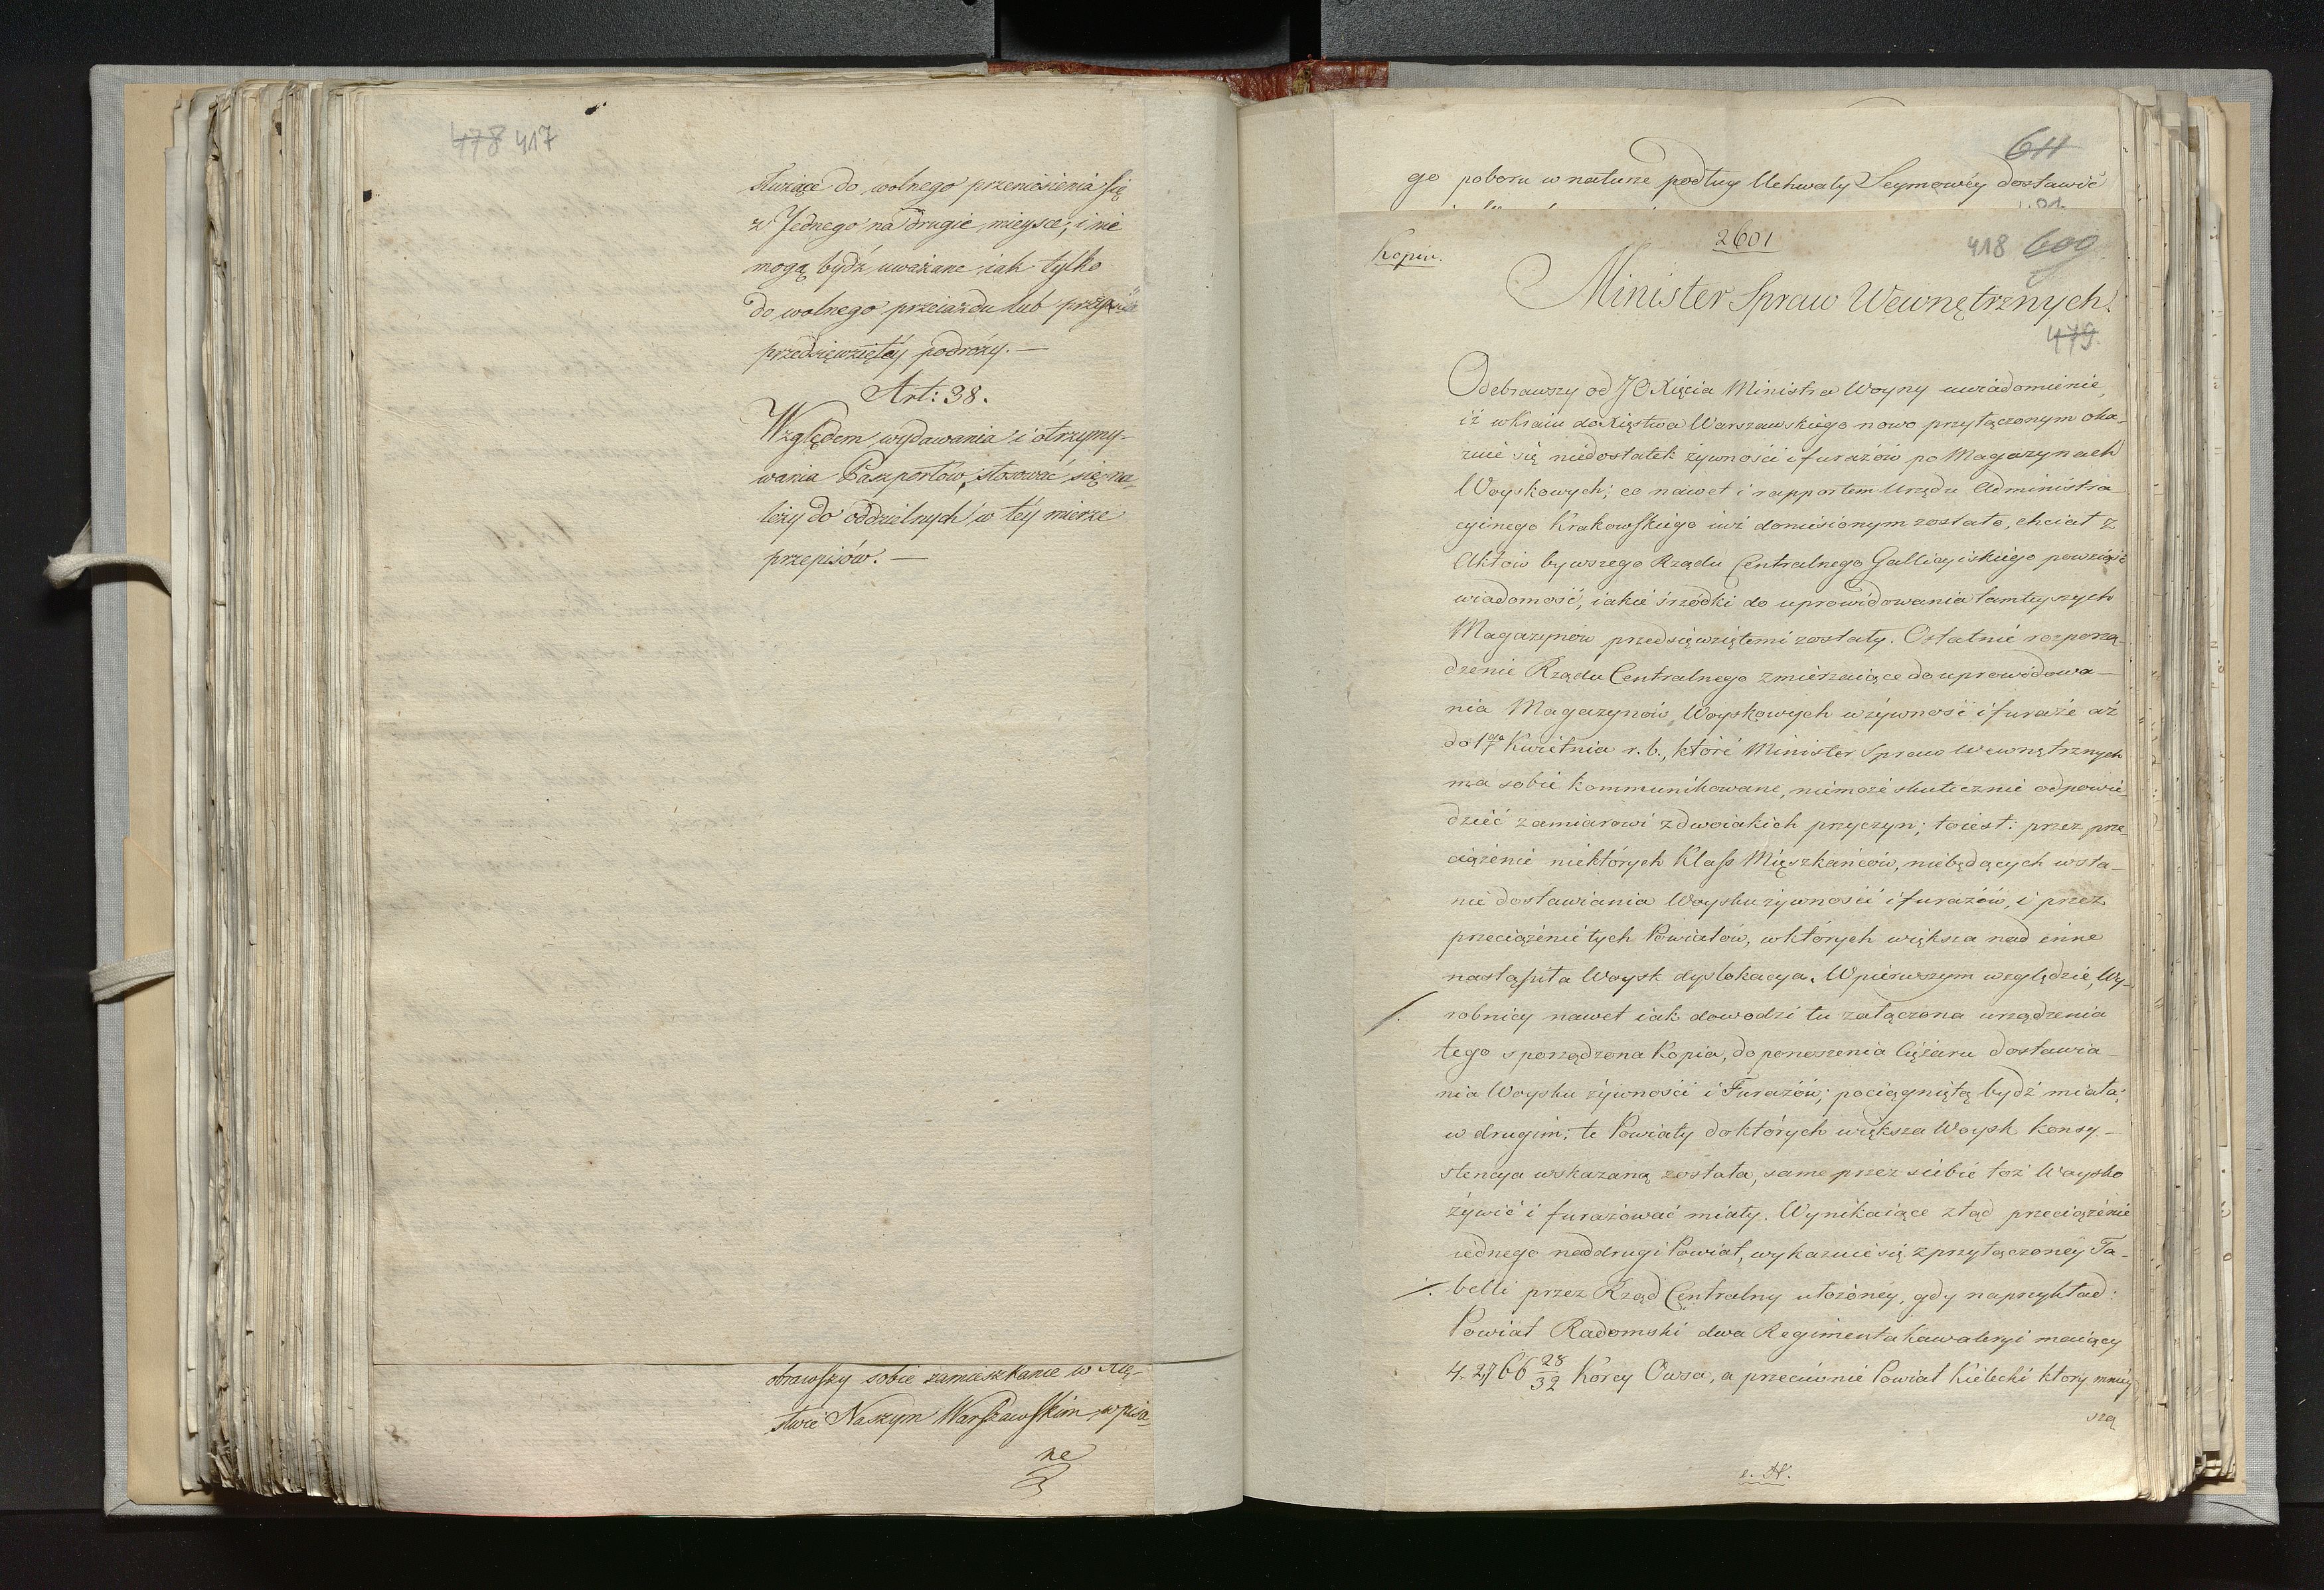 478 417
służące do wolnego przeniesienia się
z Jednego na drugie mieysce, i nie
mogą bydź uważane iak tylko
do wolnego przeiazdu lub
przedsięwziętey podróży. —
Art: 38.
Względem wydawania i otrzymy-
wania Paszportów, stosować się na-
leży do oddzielnych w tey mierze
przepisów. —
obrawszy sobie zamieszkanie w Xię-
stwie Naszym Warszawskim, wpisa-
ne
611
go poboru w naturze podług Uchwały Seymowéy dostawić
Kopia.
2601
418 609
Minister Spraw Wewnętrznych.
479
Odebrawszy od JO Xięcia Ministra Woyny uwiadomienie,
iż w Kraiu do Xięstwa Warszawskiego nowo przyłączonym oka-
zuie się niedostatek żywności i furażów po Magazynach
Woyskowych; co nawet i rapportem Urzędu Administra-
cyinego Krakowskiego iuż doniesionym zostało, chciał z
Aktów bywszego Rządu Centralnego Gallicyiskiego powziąść
wiadomość, iakié śrzódki do uprowidowania tamteyszych
Magazynów przedsięwziętemi zostały. Ostatnié rozporzą-
dzenié Rządu Centralnego zmierzaiące do uprowidowa-
nia Magazynów Woyskowych w żywność i furaże aż
do 1go Kwietnia r. b., któré Minister Spraw Wewnętrznych
ma sobie kommunikowane, niemoże skutecznie odpowie-
dzieć zamiarowi z dwoiakich przyczyn; toiest: przez prze-
ciążenié niektórych Klass Mieszkańców, niebędących w sta-
nie dostawiania Woysku żywności i furażów, i przez
przeciążenié tych Powiatów, w których większa nad inne
nastąpiła Woysk dyslokacya. W pierwszym względzie, Wy-
robnicy nawet iak dowodzi tu załączona urządzenia
tego sporządzona Kopia, do ponoszenia Ciężaru dostawia-
nia Woysku żywności i Furażów, pociągniętą bydź miała;
w drugim; te Powiaty do których większa Woysk konsy-
stencya wskazaną została, same przez siebie toż Woysko
żywić i furażować miały. Wynikaiące ztąd przeciążenié
iednego nad drugi Powiat, wykazuie się z przyłączonéy Ta-
belli przez Rząd Centralny ułożonéy, gdy naprzykład:
Powiat Radomski dwa Regimenta Kawaleryi maiący
4.2766 28/32 Korcy Owsa, a przeciwnié Powiat Kielecki który mniey-
szą